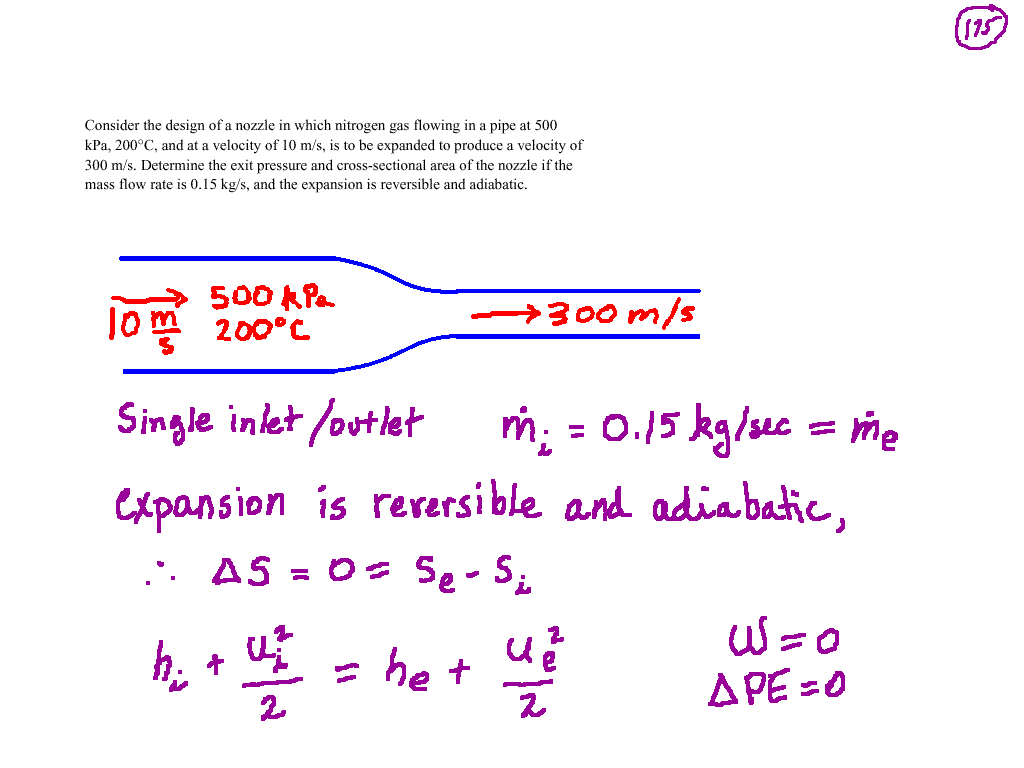 175
Consider the design of a nozzle in which nitrogen gas flowing in a pipe at 500
kPa, 200°C, and at a velocity of 10 m/s, is to be expanded to produce a velocity of
300 m/s. Determine the exit pressure and cross-sectional area of the nozzle if the
mass flow rate is 0.15 kg/s, and the expansion is reversible and adiabatic.
→ 500 kPa
10 m/s 200°C
→ 300 m/s
Single inlet/outlet ṁᵢ = 0.15 kg/sec = ṁₑ
expansion is reversible and adiabatic,
∴ ΔS = 0 = Sₑ - Sᵢ
hᵢ + uᵢ²/2 = hₑ + uₑ²/2
W = 0
ΔPE = 0